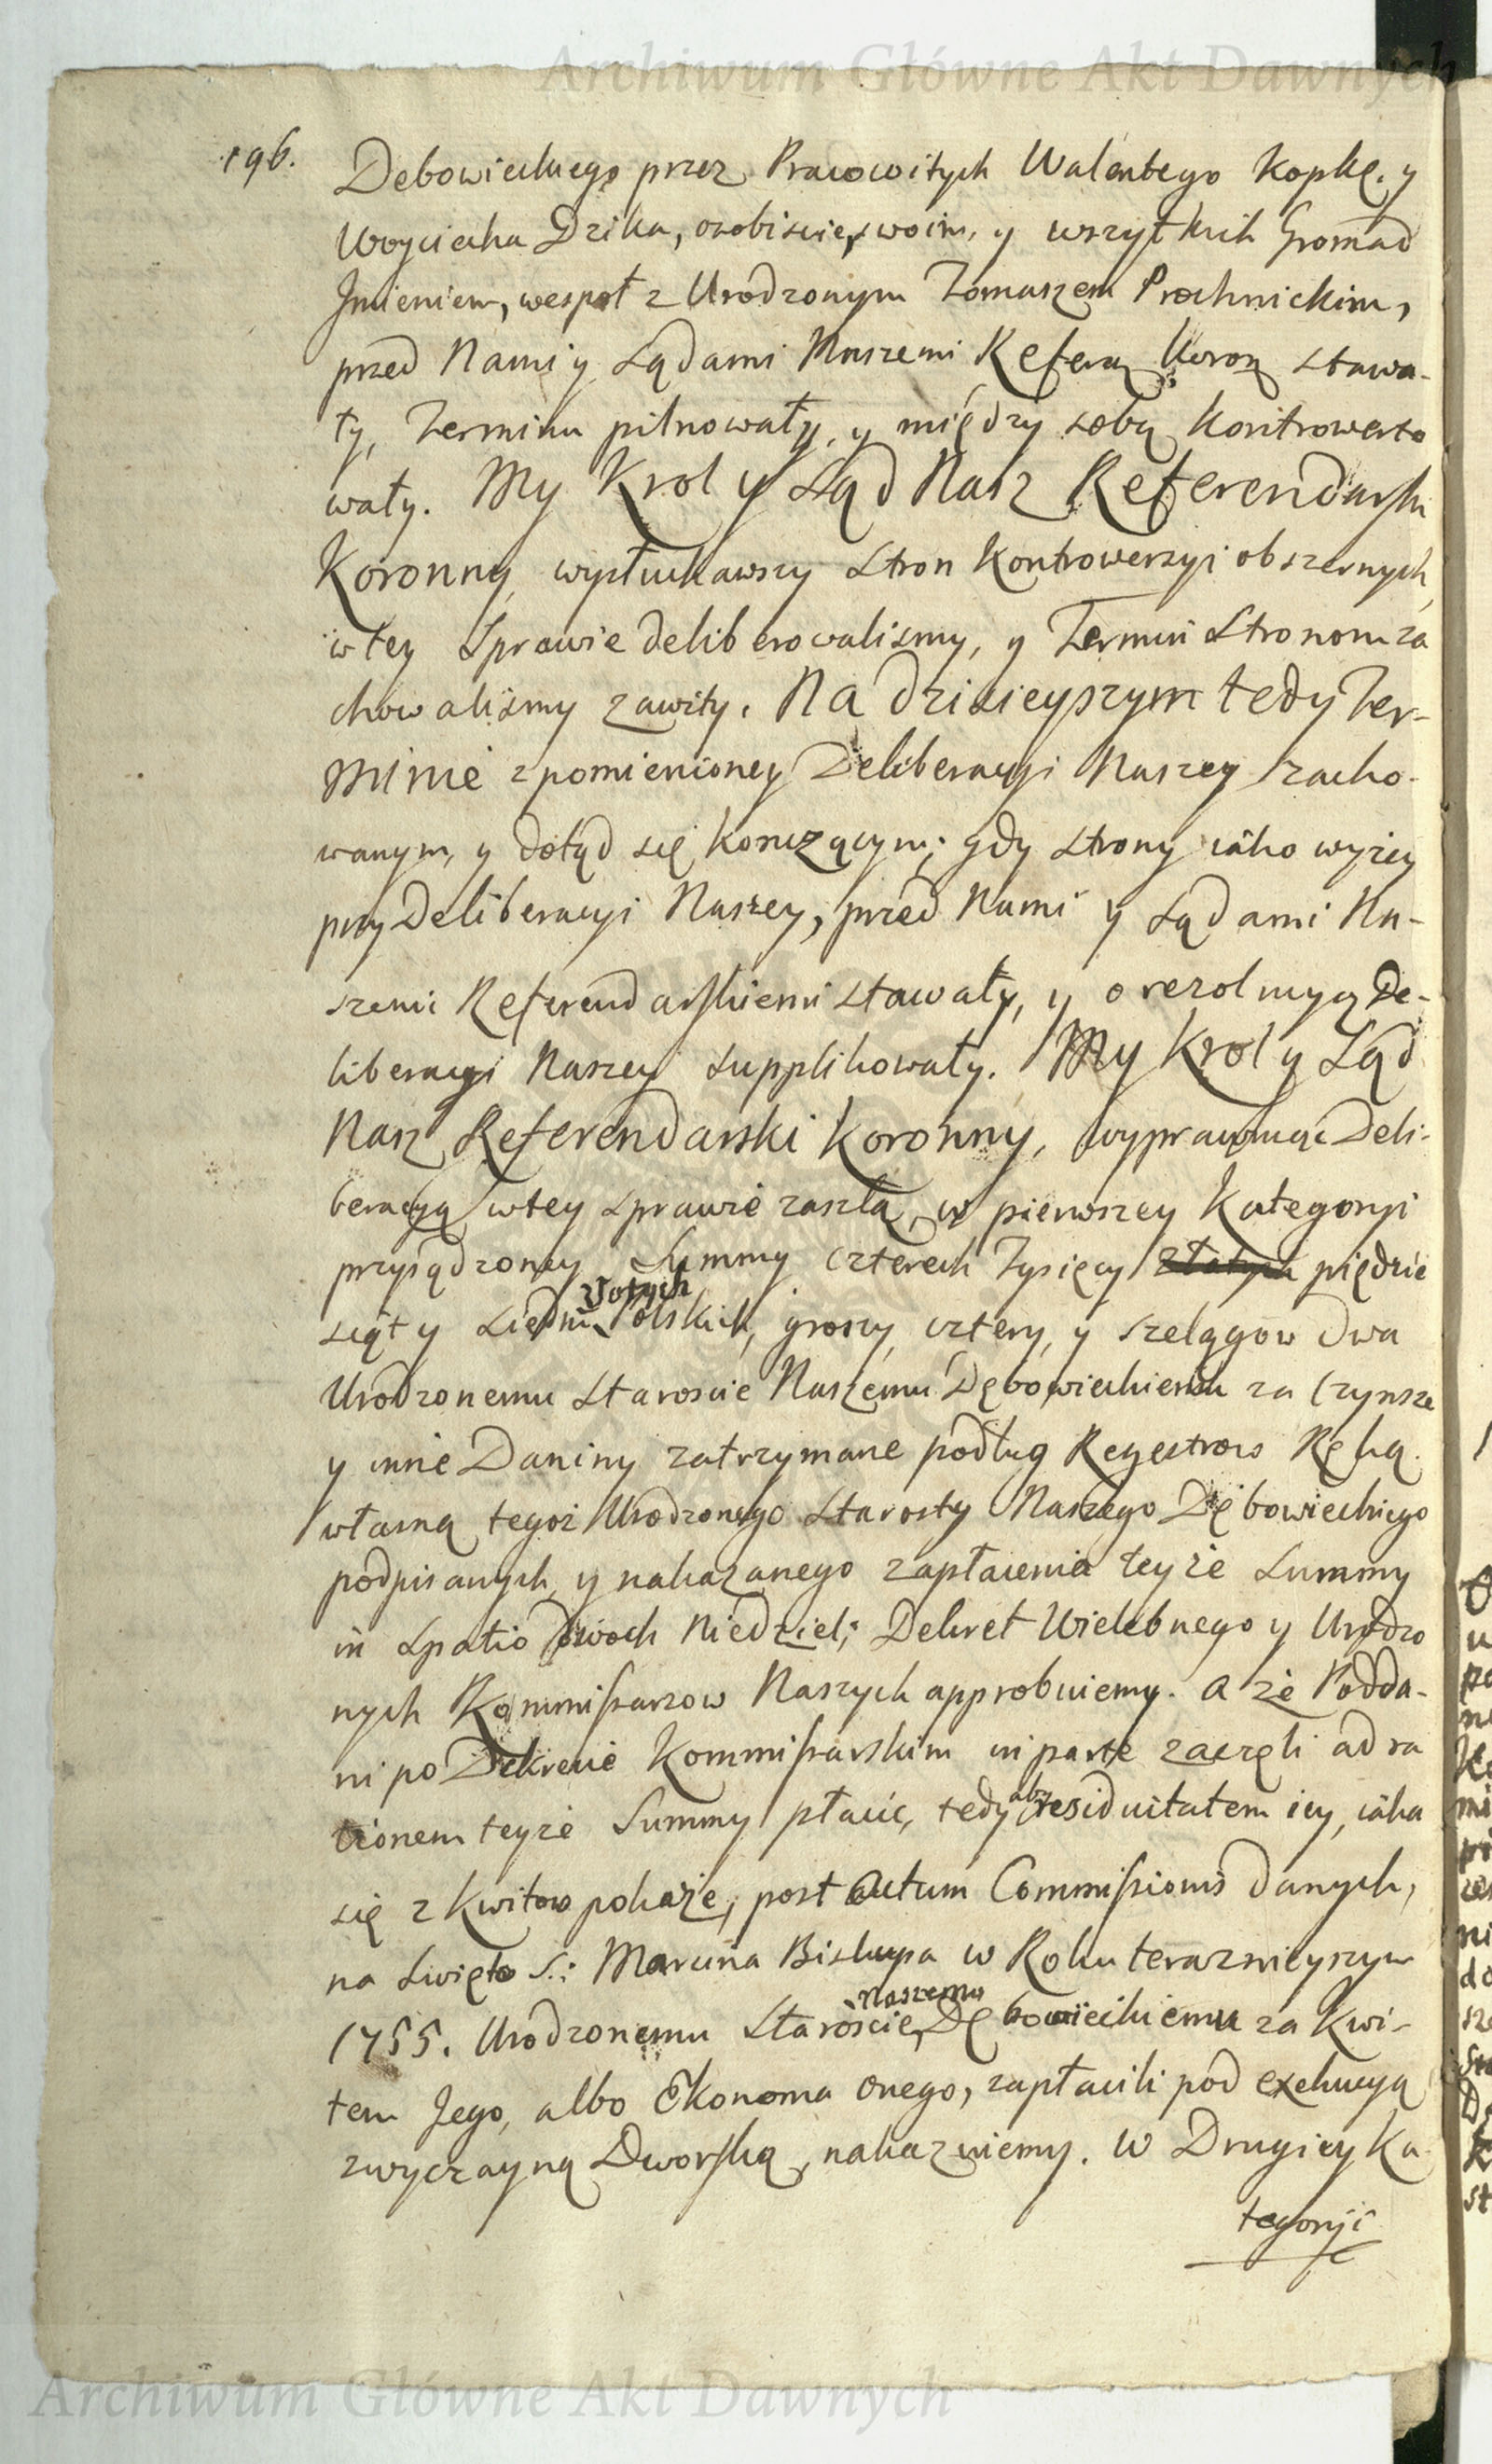 Archiwum Główne Akt Dawnych
196.
Debowieckiego przez Pracowitych Walentego Kopkę, y
Woyciecha Dzika, osobiscie, swoim, y wszytkich Gromad
Jmieniem, wespoł z Urodzonym Tomaszem Prochnickim,
przed Nami y Sądami Naszemi Referen Koron stawa-
ły, Terminu pilnowały, y między sobą Kontrowerto
wały. My Krol y Sąd Nasz Referendarski
Koronny, wysłuchawszy Stron Kontrowersyi obszernych,
w tey Sprawie deliberowalismy, y Termin Stronom za
chowalismy zawity. Na dzisieyszym tedy Ter-
minie z pomienioney Deliberacyi Naszey zacho-
wanym, y dotąd się konczącym; gdy strony iako wyzey
przy Deliberacyi Naszey, przed Nami y Sądami Na-
szemi Referendarskiemi stawały, y o rezolucyą De-
liberacyi Naszey supplikowały. My Krol y Sąd
Nasz Referendarski Koronny, wyprawuiąc Deli-
beracyą w tey sprawie zaszłą, w pierwszey Kategoryi
przysądzoney Summy czterech Tysięcy złotych pięдzie
siąt y siedm Złotych Polskich, groszy cztery, y szelągow dwa
Urodzonemu Staroscie Naszemu Dębowieckiemu za Czynsze
y inne Daniny zatrzymane podług Regestrow Ręką
własną tegoż Urodzonego Starosty Naszego Dębowieckiego
podpisanych y nakazanego zapłacenia teyże Summy
in spatio dwoch Niedziel; Dekret Wielebnego y Urodzo
nych Kommissarzow Naszych approbuiemy. A że Podda-
ni po Dekrecie Kommissarskim in parte zaczęli ad ra
tionem teyże Summy płacic, tedy aby residuitatem iey, iaka
się z Kwitow pokaże, post Actum Commissionis danych,
na Swięto S.: Marcina Biskupa w Roku teraznieyszym
1755. Urodzonemu Staroscie Naszemu Dębowieckiemu za Kwi-
tem Jego, albo Ekonoma onego, zapłacili pod exekucyą
zwyczayną Dworską, nakazuiemy. W Drugiey Ka-
tegoryi
Archiwum Główne Akt Dawnych